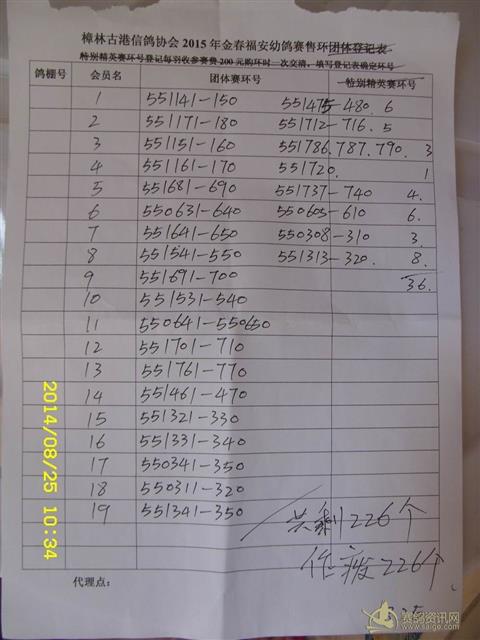 樟林古港信鸽协会2015年金春福安幼鸽赛售环团体登记表
特别精英赛环号登记每羽收参赛费200元购环时一次交清,填写登记表确定环号
鸽棚号 会员名 团体赛环号 特别精英赛环号
1 551141-150 551475-480. 6
2 551171-180 551712-716. 5
3 551151-160 551786.787.790. 3
4 551161-170 551720. 1
5 551681-690 551737-740 4.
6 550631-640 550605-610 6.
7 551641-650 550308-310 3.
8 551541-550 551313-320. 8.
9 551691-700 36.
10 551531-540
11 550641-550650
12 551701-710
13 551761-770
14 551461-470
15 551321-330
16 551331-340
17 550341-350
18 550311-320
19 551341-350
共剩226个
作废226个
代理点:
2014/08/25 10:34
赛鸽资讯网
www.saige.com